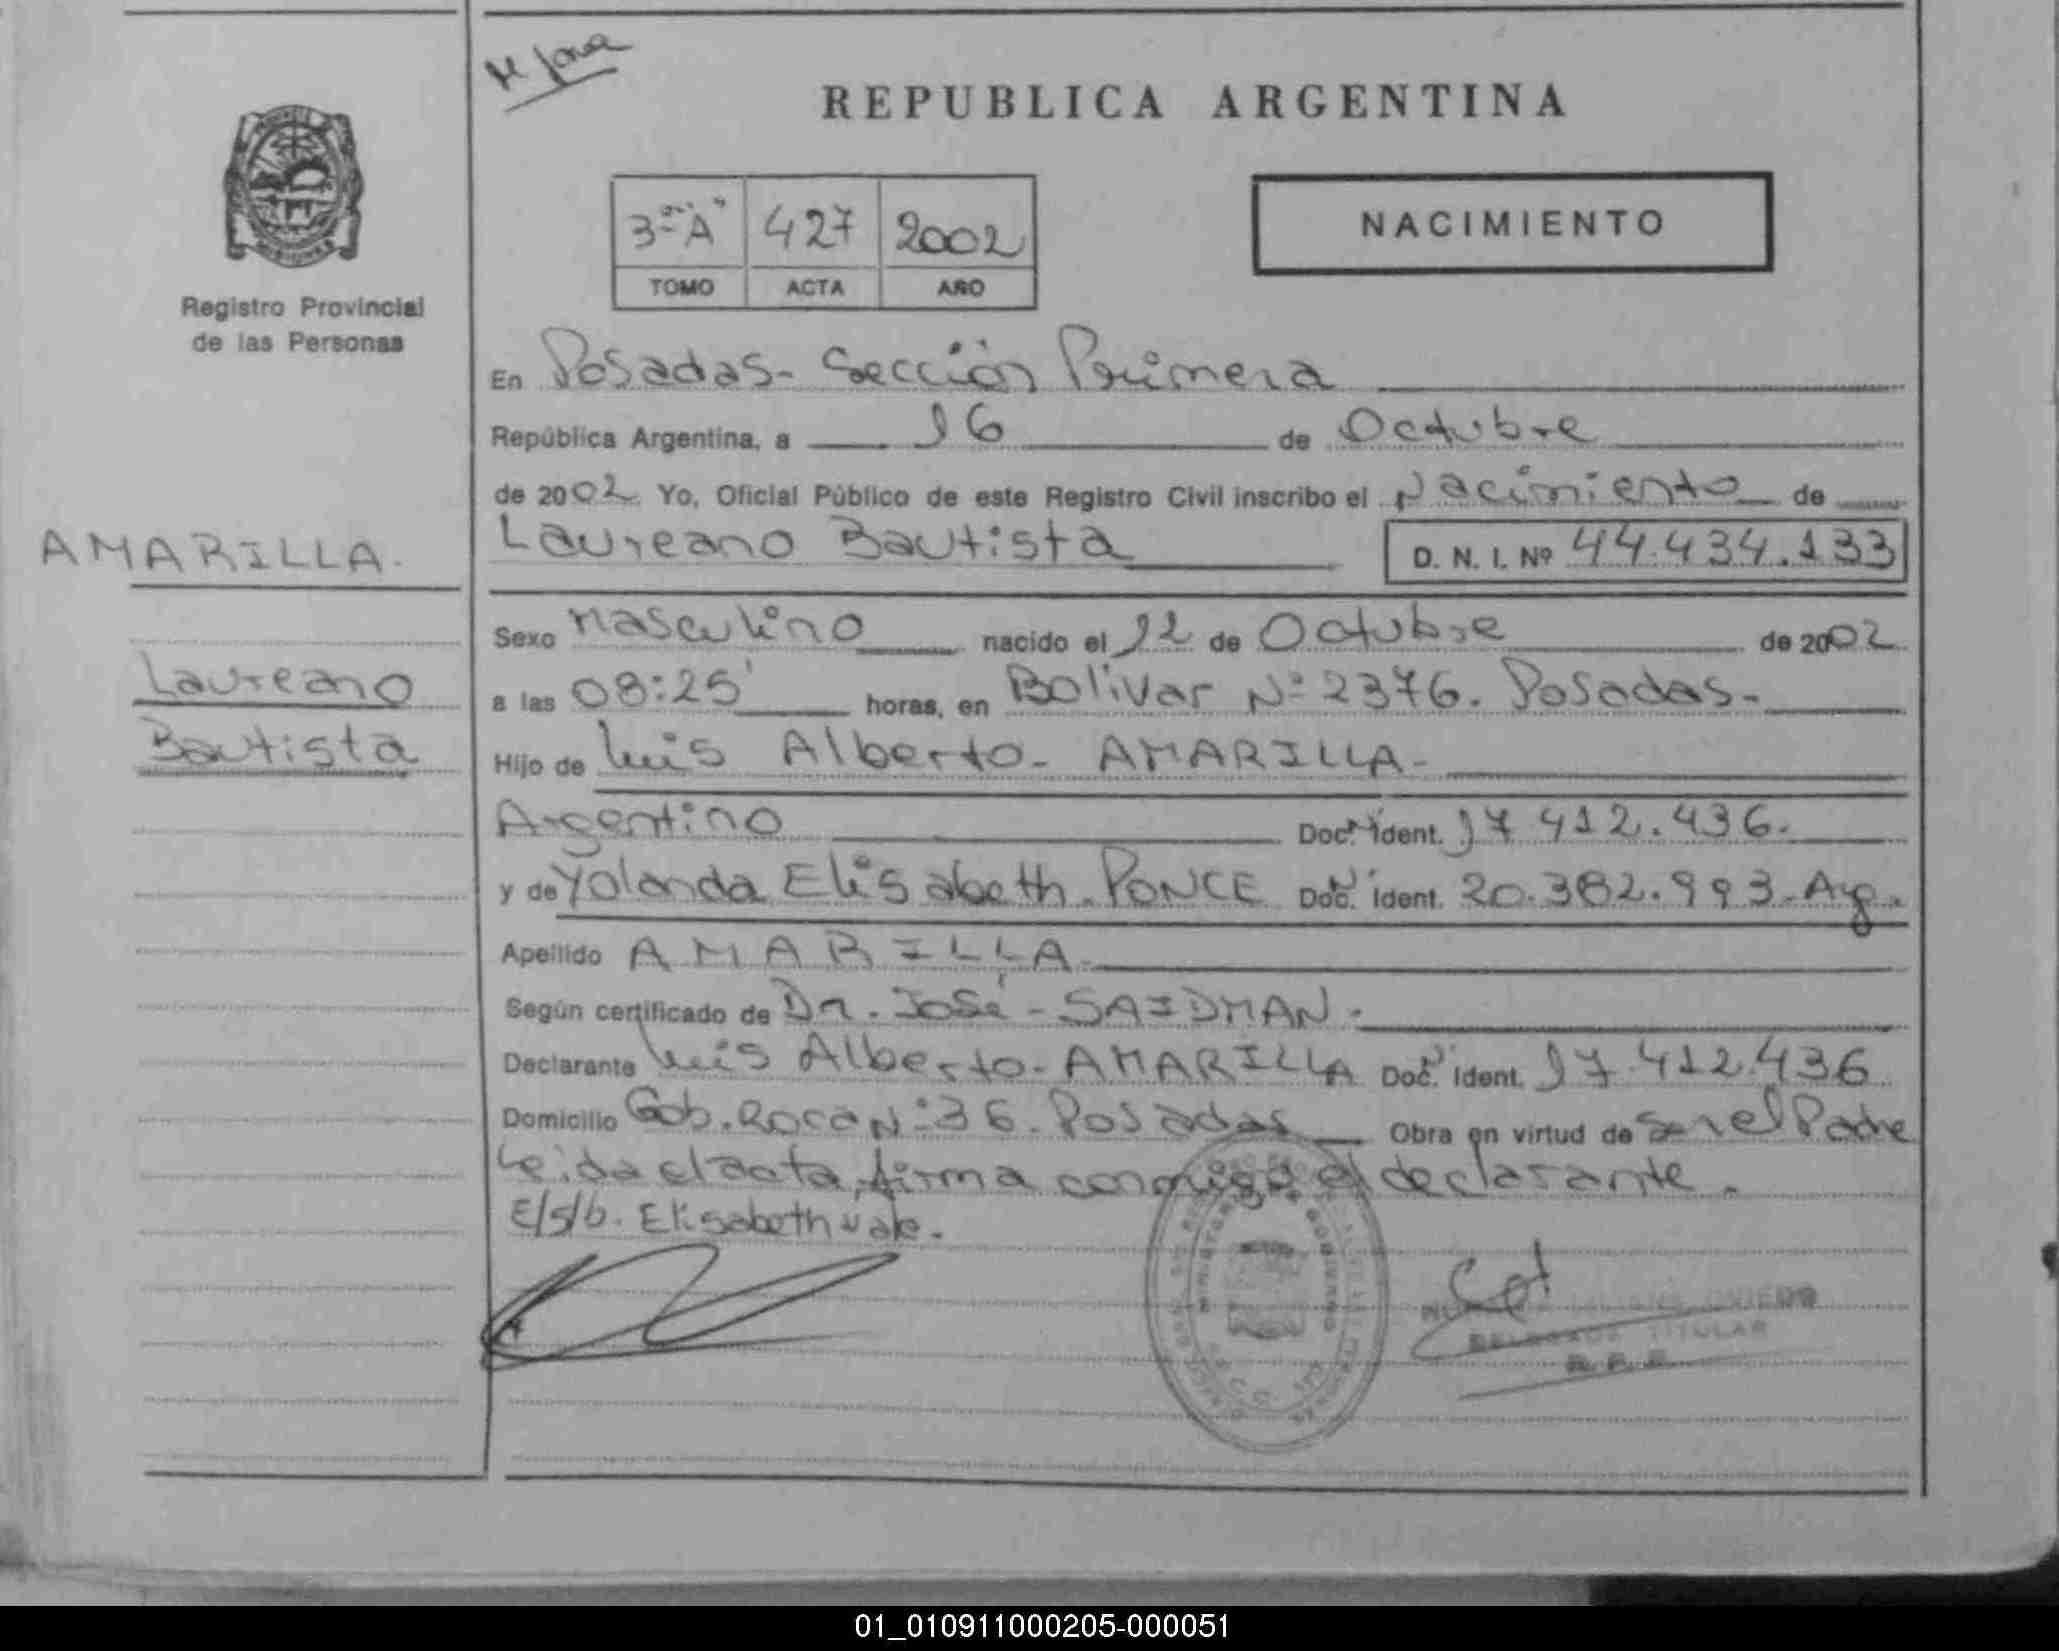 REPUBLICA ARGENTINA
3º "A" 427 2002
TOMO ACTA AÑO
NACIMIENTO
Registro Provincial
de las Personas
En Posadas- Sección Primera
República Argentina, a 16 de Octubre
de 2002 Yo, Oficial Público de este Registro Civil inscribo el Nacimiento de
AMARILLA.
Laureano Bautista D. N. I. Nº 44.434.133
Sexo Masculino nacido el 12 de Octubre de 2002
Laureano
a las 08:25' horas, en Bolivar Nº 2376. Posadas-
Bautista
Hijo de Luis Alberto- AMARILLA-
Argentino Doc. Ident. 17 412.436.
y de Yolanda Elisabeth. PONCE Doc. Ident. 20.382.993-Arg.
Apellido AMARILLA-
Según certificado de Dr. José - SAIDMAN.
Declarante Luis Alberto- AMARILLA Doc. Ident. 17.412.436
Domicilio Gob. Roca Nº 36. Posadas Obra en virtud de Ser el Padre
Leida el acta, firma conmigo el declarante.
E/s/b. Elisabeth vale.
OVIEDO
DELEGADA TITULAR
R. P. P.
01_010911000205-000051